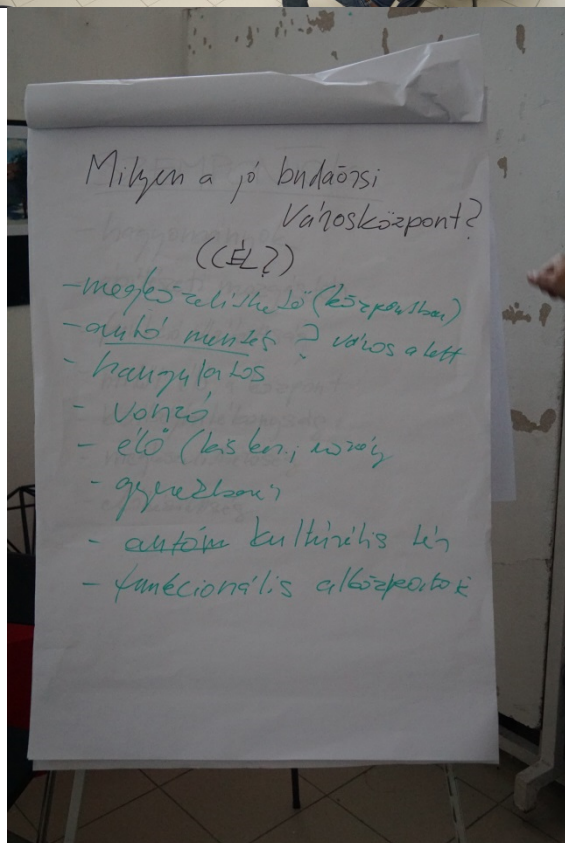 Milyen a jó budaörsi
Városközpont?
(CÉL?)
- megközelíthető (központban)
- autó mentes ? város alatt
- hangulatos
- vonzó
- élő (kisker.,
- gyerekbarát
- autóm kulturális tér
- funkcionális alközpontok